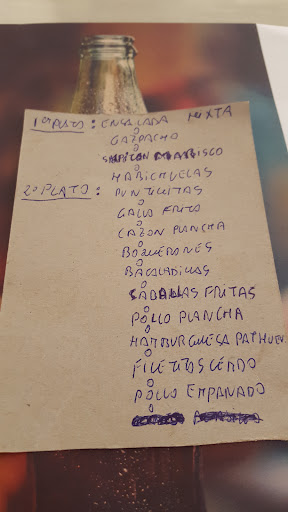 1er PLATO: ENSALADA MIXTA
O
GAZPACHO
O
SALPICON MARISCO
O
HABICHUELAS
2º PLATO: PUNTILLITAS
O
GALLO FRITO
O
CAZON PLANCHA
O
BOQUERONES
O
BACALADILLAS
O
CABALLAS FRITAS
O
POLLO PLANCHA
O
HAMBURGUESA PAT HUEV
O
FILETITOS CERDO
O
POLLO EMPANADO
O